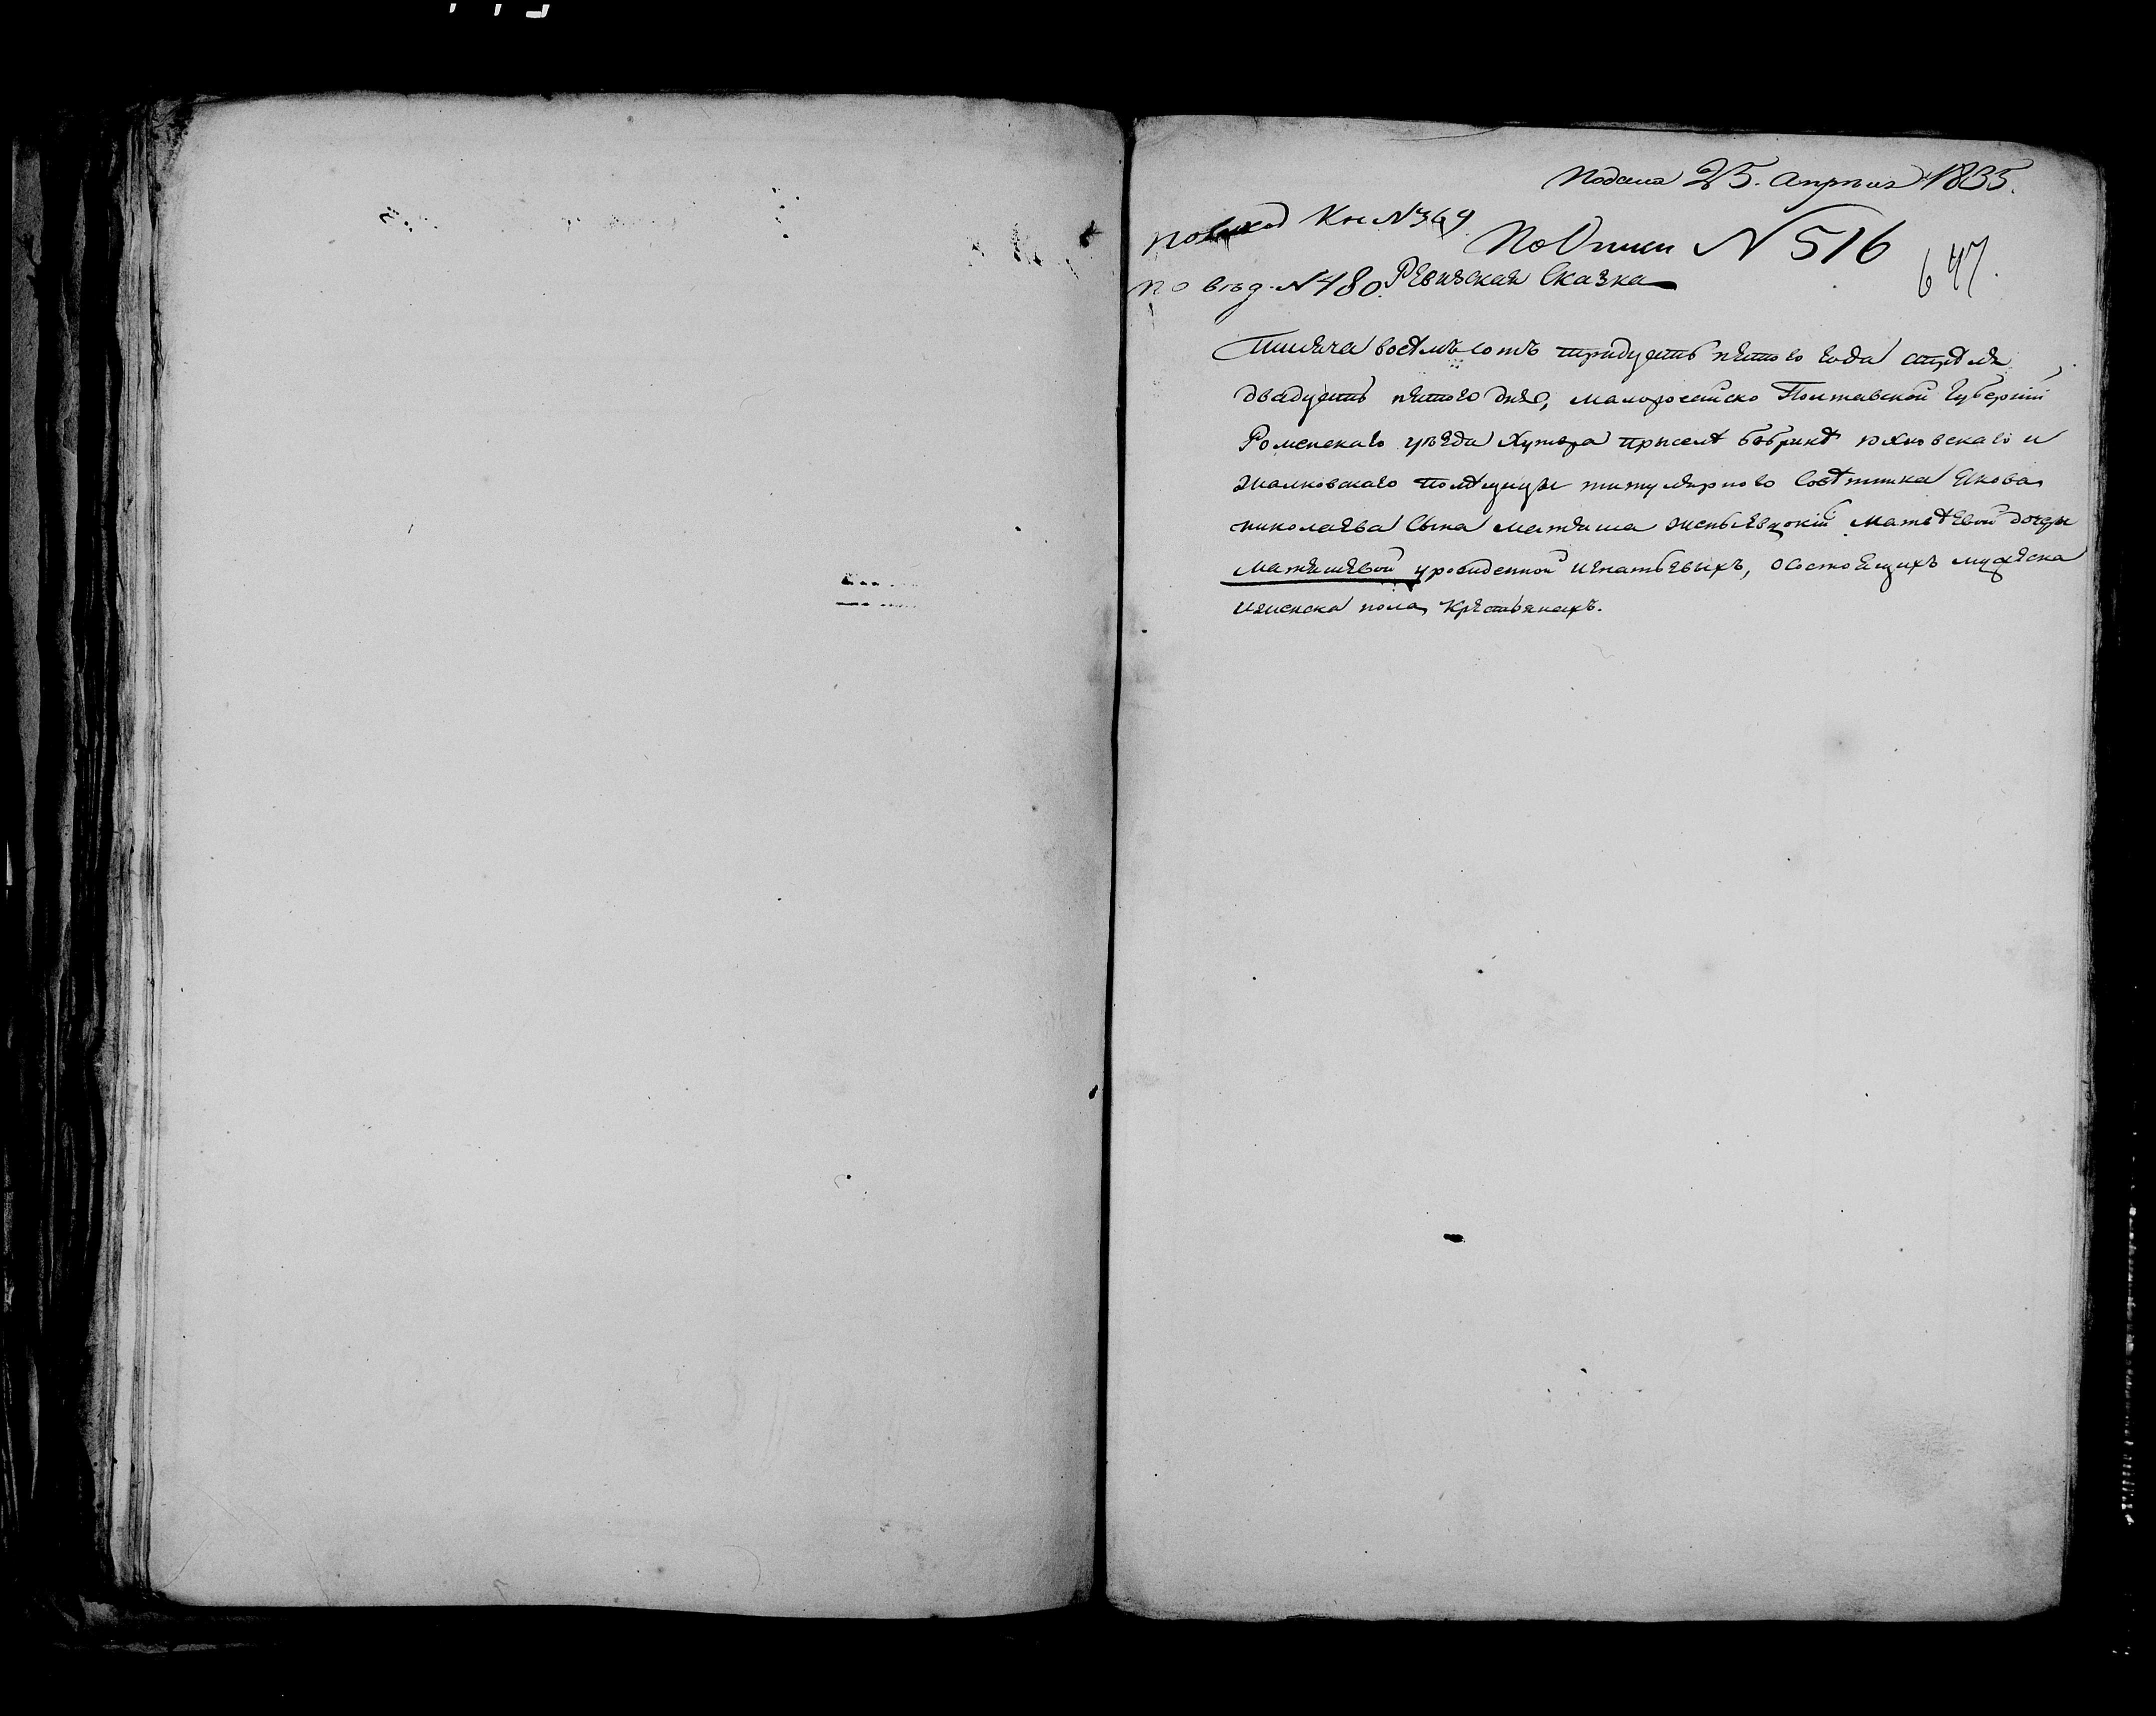 Подана 25. апрѣля 1835.
по вход Кн № 369
По Описи № 516
647.
по вѣд. № 480.
Ревизская Сказка
тысяча восемъсотъ тридцать пятого года апреля
двадцать пятого дня, малоросейско Полтавской Губерніи
Роменскаго уѣзда Хутора присели бобрике юхновскаго и
жалковскаго помещицы титулярного Советника Якова
николаева Сына матяша жены Матвеевой дочери
матяшевой урожденной игнатьевыхъ, о состоящихъ мужеска
и женска пола, крестьянахъ.